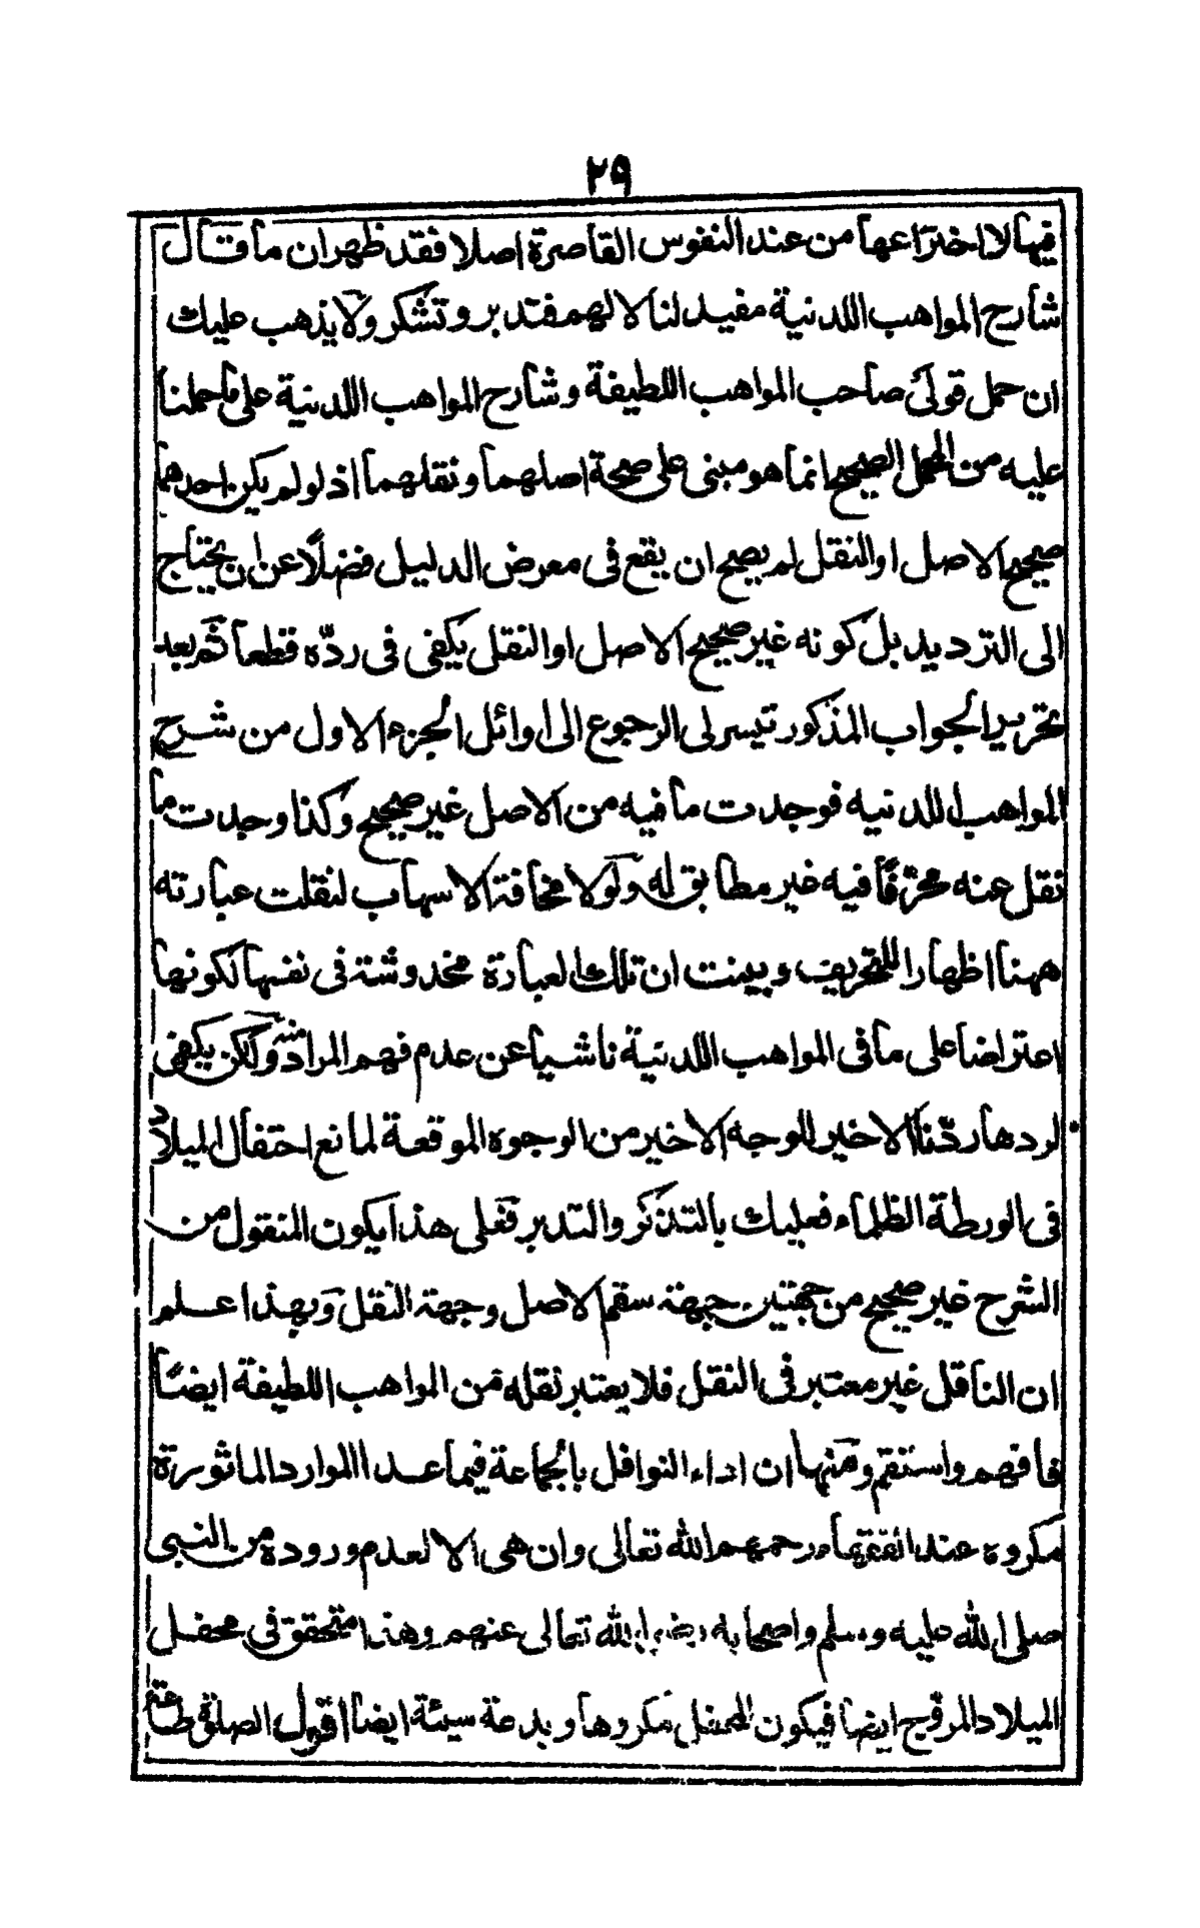 ٢٩
فيها لا اختراعها من عند النفوس القاصرة اصلا فقد ظهر ان ما قال
شارح المواهب اللدنية مفيد لنا لا لهم فتدبر وتشكر ولا يذهب عليك
ان حمل قولى صاحب المواهب اللطيفة وشارح المواهب اللدنية على ما حملنا
عليه من المحمل الصحيح انما هو مبنى على صحة اصلهما ونقلهما اذ لو لم يكن احدهما
صحيح الاصل او النقل لم يصح ان يقع فى معرض الدليل فضلًا عن ان يحتاج
الى الترديد بل كونه غير صحيح الاصل او النقل يكفى فى ردّه قطعا ثم بعد
تحرير الجواب المذكور تيسر لى الرجوع الى اوائل الجزء الاول من شرح
المواهب اللدنيه فوجدت ما فيه من الاصل غير صحيح وكذا وجدت ما
نقل عنه محرّفًا فيه غير مطابق له ولولا مخافة الاسهاب لنقلت عبارته
ههنا اظهارا للتحريف وبينت ان تلك العبارة مخدوشة فى نفسها لكونها
اعتراضا على ما فى المواهب اللدنية ناشيا عن عدم فهم المراد منه ولكن يكفى
لردها ردّنا الاخير للوجه الاخير من الوجوه الموقعة لمانع احتفال الميلاد
فى الورطة الظلماء فعليك بالتذكر والتدبر فعلى هذا يكون المنقول من
الشرح غير صحيح من جهتين جهة سقم الاصل وجهة النقل وبهذا علم
ان الناقل غير معتبر فى النقل فلا يعتبر نقله من المواهب اللطيفة ايضًا
فافهم واستقم ومنها ان اداء النوافل بالجماعة فيما عدا الموارد الماثورة
مكروه عند الفقهاء رحمهم الله تعالى وان هى الا لعدم وروده من النبى
صلى الله عليه وسلم واصحابه رضى الله تعالى عنهم وهذا متحقق فى محفل
الميلاد المروّج ايضا فيكون المحفل مكروها وبدعة سيئة ايضا اقول الصلوة طاعة